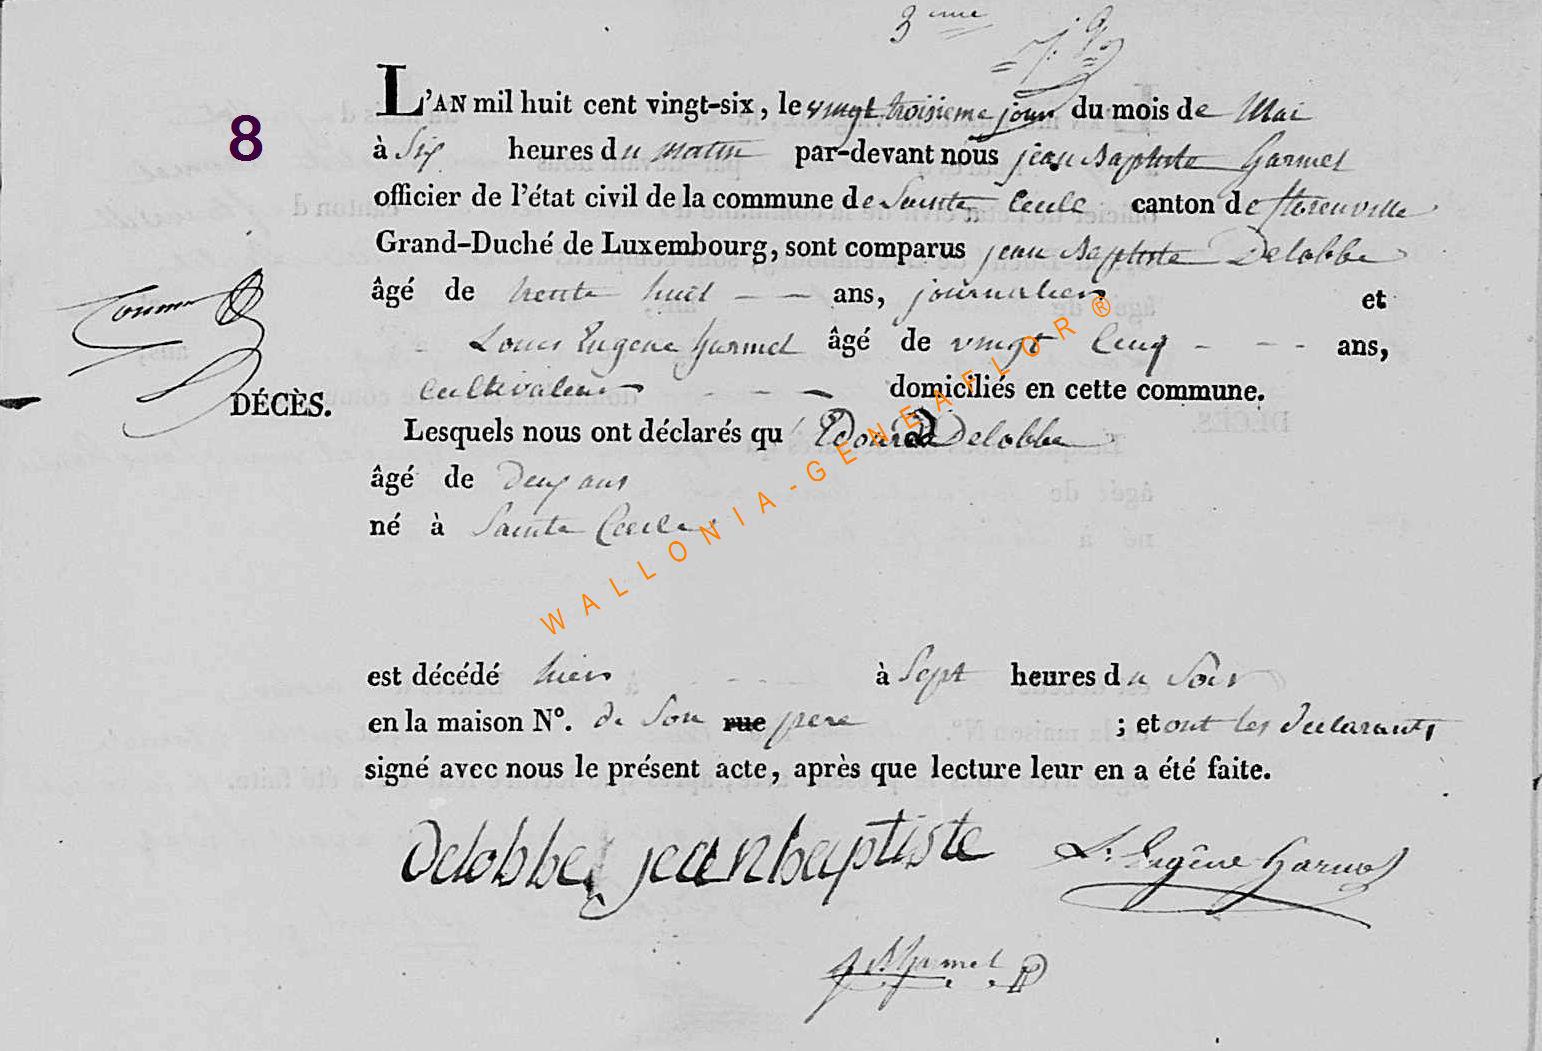 3eme
8
L'AN mil huit cent vingt-six, le vingt troisieme jour du mois de Mai
à Six heures du matin par-devant nous jean Baptiste Harmel
officier de l'état civil de la commune de Sainte Cecile canton de florenville
Grand-Duché de Luxembourg, sont comparus jean Baptiste Delobbe
âgé de trente huit - - ans, journalier et
- Louis Eugene Harmel âgé de vingt Cinq - - - ans,
cultivateur - - - domiciliés en cette commune.
DÉCÈS.
Lesquels nous ont déclarés qu' Edouard Delobbe
âgé de Deux ans
né à Sainte Cecile
est décédé hier - - - à Sept heures du Soir
en la maison N°. de Son rue pere ; et ont les declarants
signé avec nous le présent acte, après que lecture leur en a été faite.
Delobbe jeanbaptiste L. Eugêne Harmel
J B Harmel
WALLONIA-GENEAFLOR®